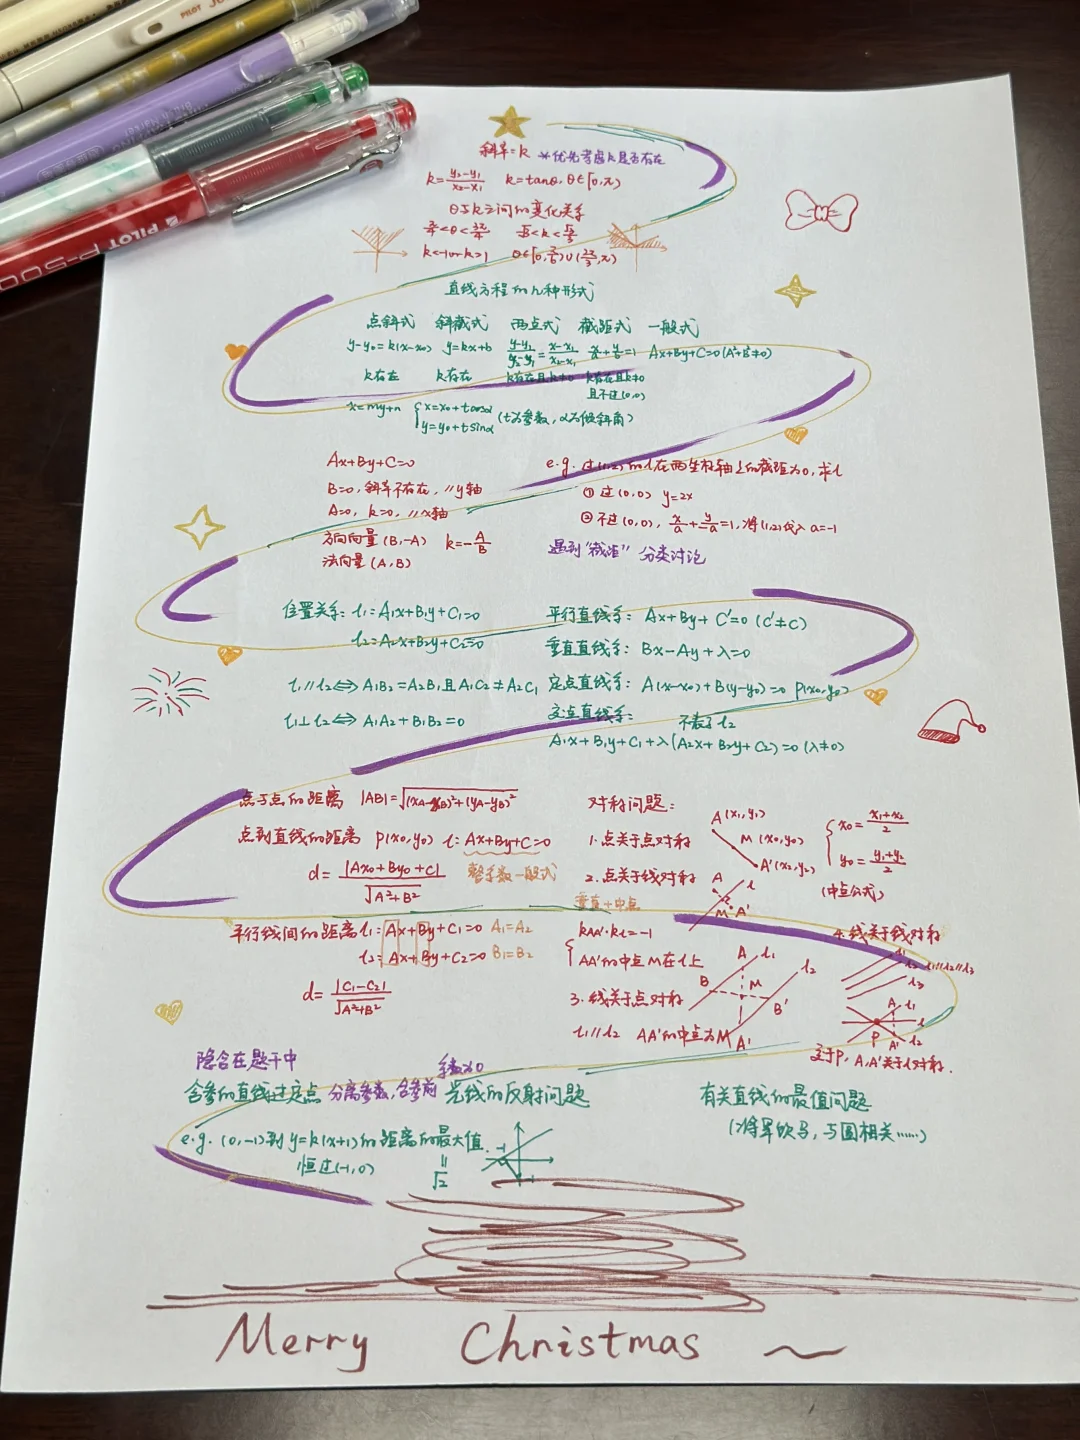 PILOT
PILOT P-500
斜率=k *优先考虑k是否存在
k=(y₂-y₁)/(x₂-x₁) k=tanθ, θ∈[0,π)
θ与k之间的变化关系
π/4<θ<3π/4
k<-1 or k>1 θ∈[0,π/6)∪(2π/3,π)
直线方程的几种形式
点斜式 斜截式 两点式 截距式 一般式
y-y₀=k(x-x₀) y=kx+b (y-y₁)/(y₂-y₁)=(x-x₁)/(x₂-x₁) x/a+y/b=1 Ax+By+C=0(A²+B²≠0)
k存在 k存在 k存在且k≠0 k存在且k≠0
且不过(0,0)
x=my+n {x=x₀+tcosα
y=y₀+tsinα (t为参数,α为倾斜角)
Ax+By+C=0
B=0,斜率不存在,//y轴
A=0, k=0, //x轴
方向向量(B,-A) k=-A/B
法向量(A,B)
e.g. 过(1,2)的l在两坐标轴上的截距为0,求l
① 过(0,0) y=2x
② 不过(0,0), x/a+y/-a=1,将(1,2)代入 a=-1
遇到"截距" 分类讨论
位置关系: l₁=A₁x+B₁y+C₁=0
l₂=A₂x+B₂y+C₂=0
l₁//l₂⇔A₁B₂=A₂B₁且A₁C₂≠A₂C₁
l₁⊥l₂⇔A₁A₂+B₁B₂=0
平行直线系: Ax+By+C'=0 (C'≠C)
垂直直线系: Bx-Ay+λ=0
定点直线系: A(x-x₀)+B(y-y₀)=0 P(x₀,y₀)
交点直线系: 不表示l₂
A₁x+B₁y+C₁+λ(A₂x+B₂y+C₂)=0 (λ≠0)
点与点的距离 |AB|=√((xA-xB)²+(yA-yB)²)
点到直线的距离 P(x₀,y₀) l:Ax+By+C=0
d=|Ax₀+By₀+C|/√(A²+B²) 整系数一般式
平行线间的距离 l₁:Ax+By+C₁=0 A₁=A₂
l₂:Ax+By+C₂=0 B₁=B₂
d=|C₁-C₂|/√(A²+B²)
对称问题:
1.点关于点对称 A(x₁,y₁) M(x₀,y₀) A'(x₂,y₂)
{x₀=(x₁+x₂)/2
y₀=(y₁+y₂)/2
(中点公式)
2.点关于线对称 A l M A'
垂直+中点
{kAA'·kl=-1
AA'的中点M在l上
3.线关于点对称 A l₁ l₂ B M B' A'
l₁//l₂ AA'的中点为M
4.线关于线对称
l₁ l₂ l₁//l₂//l₃
l₃
A l₁ l P A' l₂
交于P, A,A'关于l对称.
隐含在题干中
含参的直线过定点 分离参数,含参前系数为0 光线的反射问题
有关直线的最值问题
(将军饮马,与圆相关……)
e.g. (0,-1)到y=k(x+1)的距离的最大值. -1 -1
恒过(-1,0) = √2
Merry Christmas ~